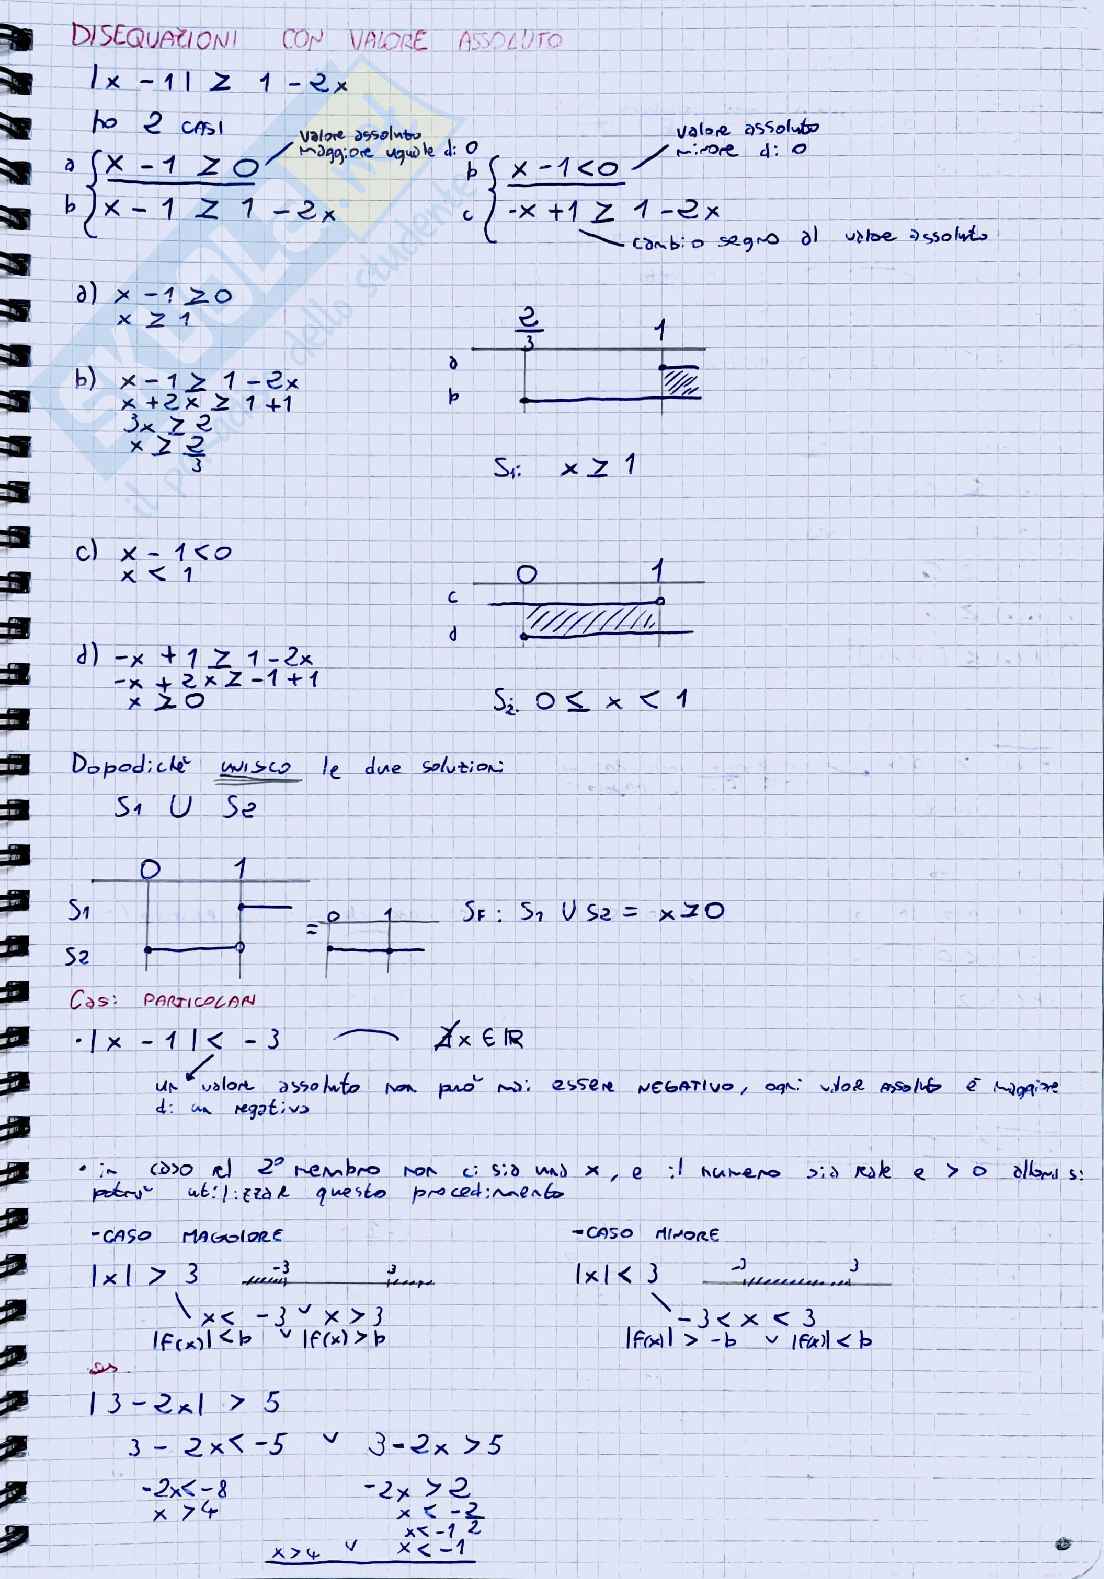 DISEQUAZIONI CON VALORE ASSOLUTO
|x - 1| ≥ 1 - 2x
ho 2 CASI
valore assoluto
maggiore uguale di 0
a { x - 1 ≥ 0
b { x - 1 ≥ 1 - 2x
valore assoluto
minore di 0
b { x - 1 < 0
c { -x + 1 ≥ 1 - 2x
cambio segno al valore assoluto
a) x - 1 ≥ 0
x ≥ 1
b) x - 1 ≥ 1 - 2x
x + 2x ≥ 1 + 1
3x ≥ 2
x ≥ 2/3
2/3 1
a
b
S1: x ≥ 1
c) x - 1 < 0
x < 1
d) -x + 1 ≥ 1 - 2x
-x + 2x ≥ -1 + 1
x ≥ 0
0 1
c
d
S2: 0 ≤ x < 1
Dopodichè UNISCO le due soluzioni
S1 U S2
0 1
S1
S2
= 0 1
SF: S1 U S2 = x ≥ 0
Casi PARTICOLARI
• |x - 1| < - 3 ∄x ∈ ℝ
un valore assoluto non può mai essere NEGATIVO, ogni valor assoluto è maggiore
di un negativo
• in caso nel 2° membro non ci sia una x, e il numero sia reale e > 0 allora si
potrà utilizzare questo procedimento
- CASO MAGGIORE
|x| > 3 -3 3
x < - 3 ∨ x > 3
|f(x)| < b ∨ |f(x)| > b
- CASO MINORE
|x| < 3 -3 3
- 3 < x < 3
|f(x)| > -b ∨ |f(x)| < b
es
|3 - 2x| > 5
3 - 2x < -5 ∨ 3 - 2x > 5
-2x < -8 -2x > 2
x > 4 x < -2/2
x < -1
x > 4 ∨ x < -1
SKUOLA.net
il paradiso dello studente